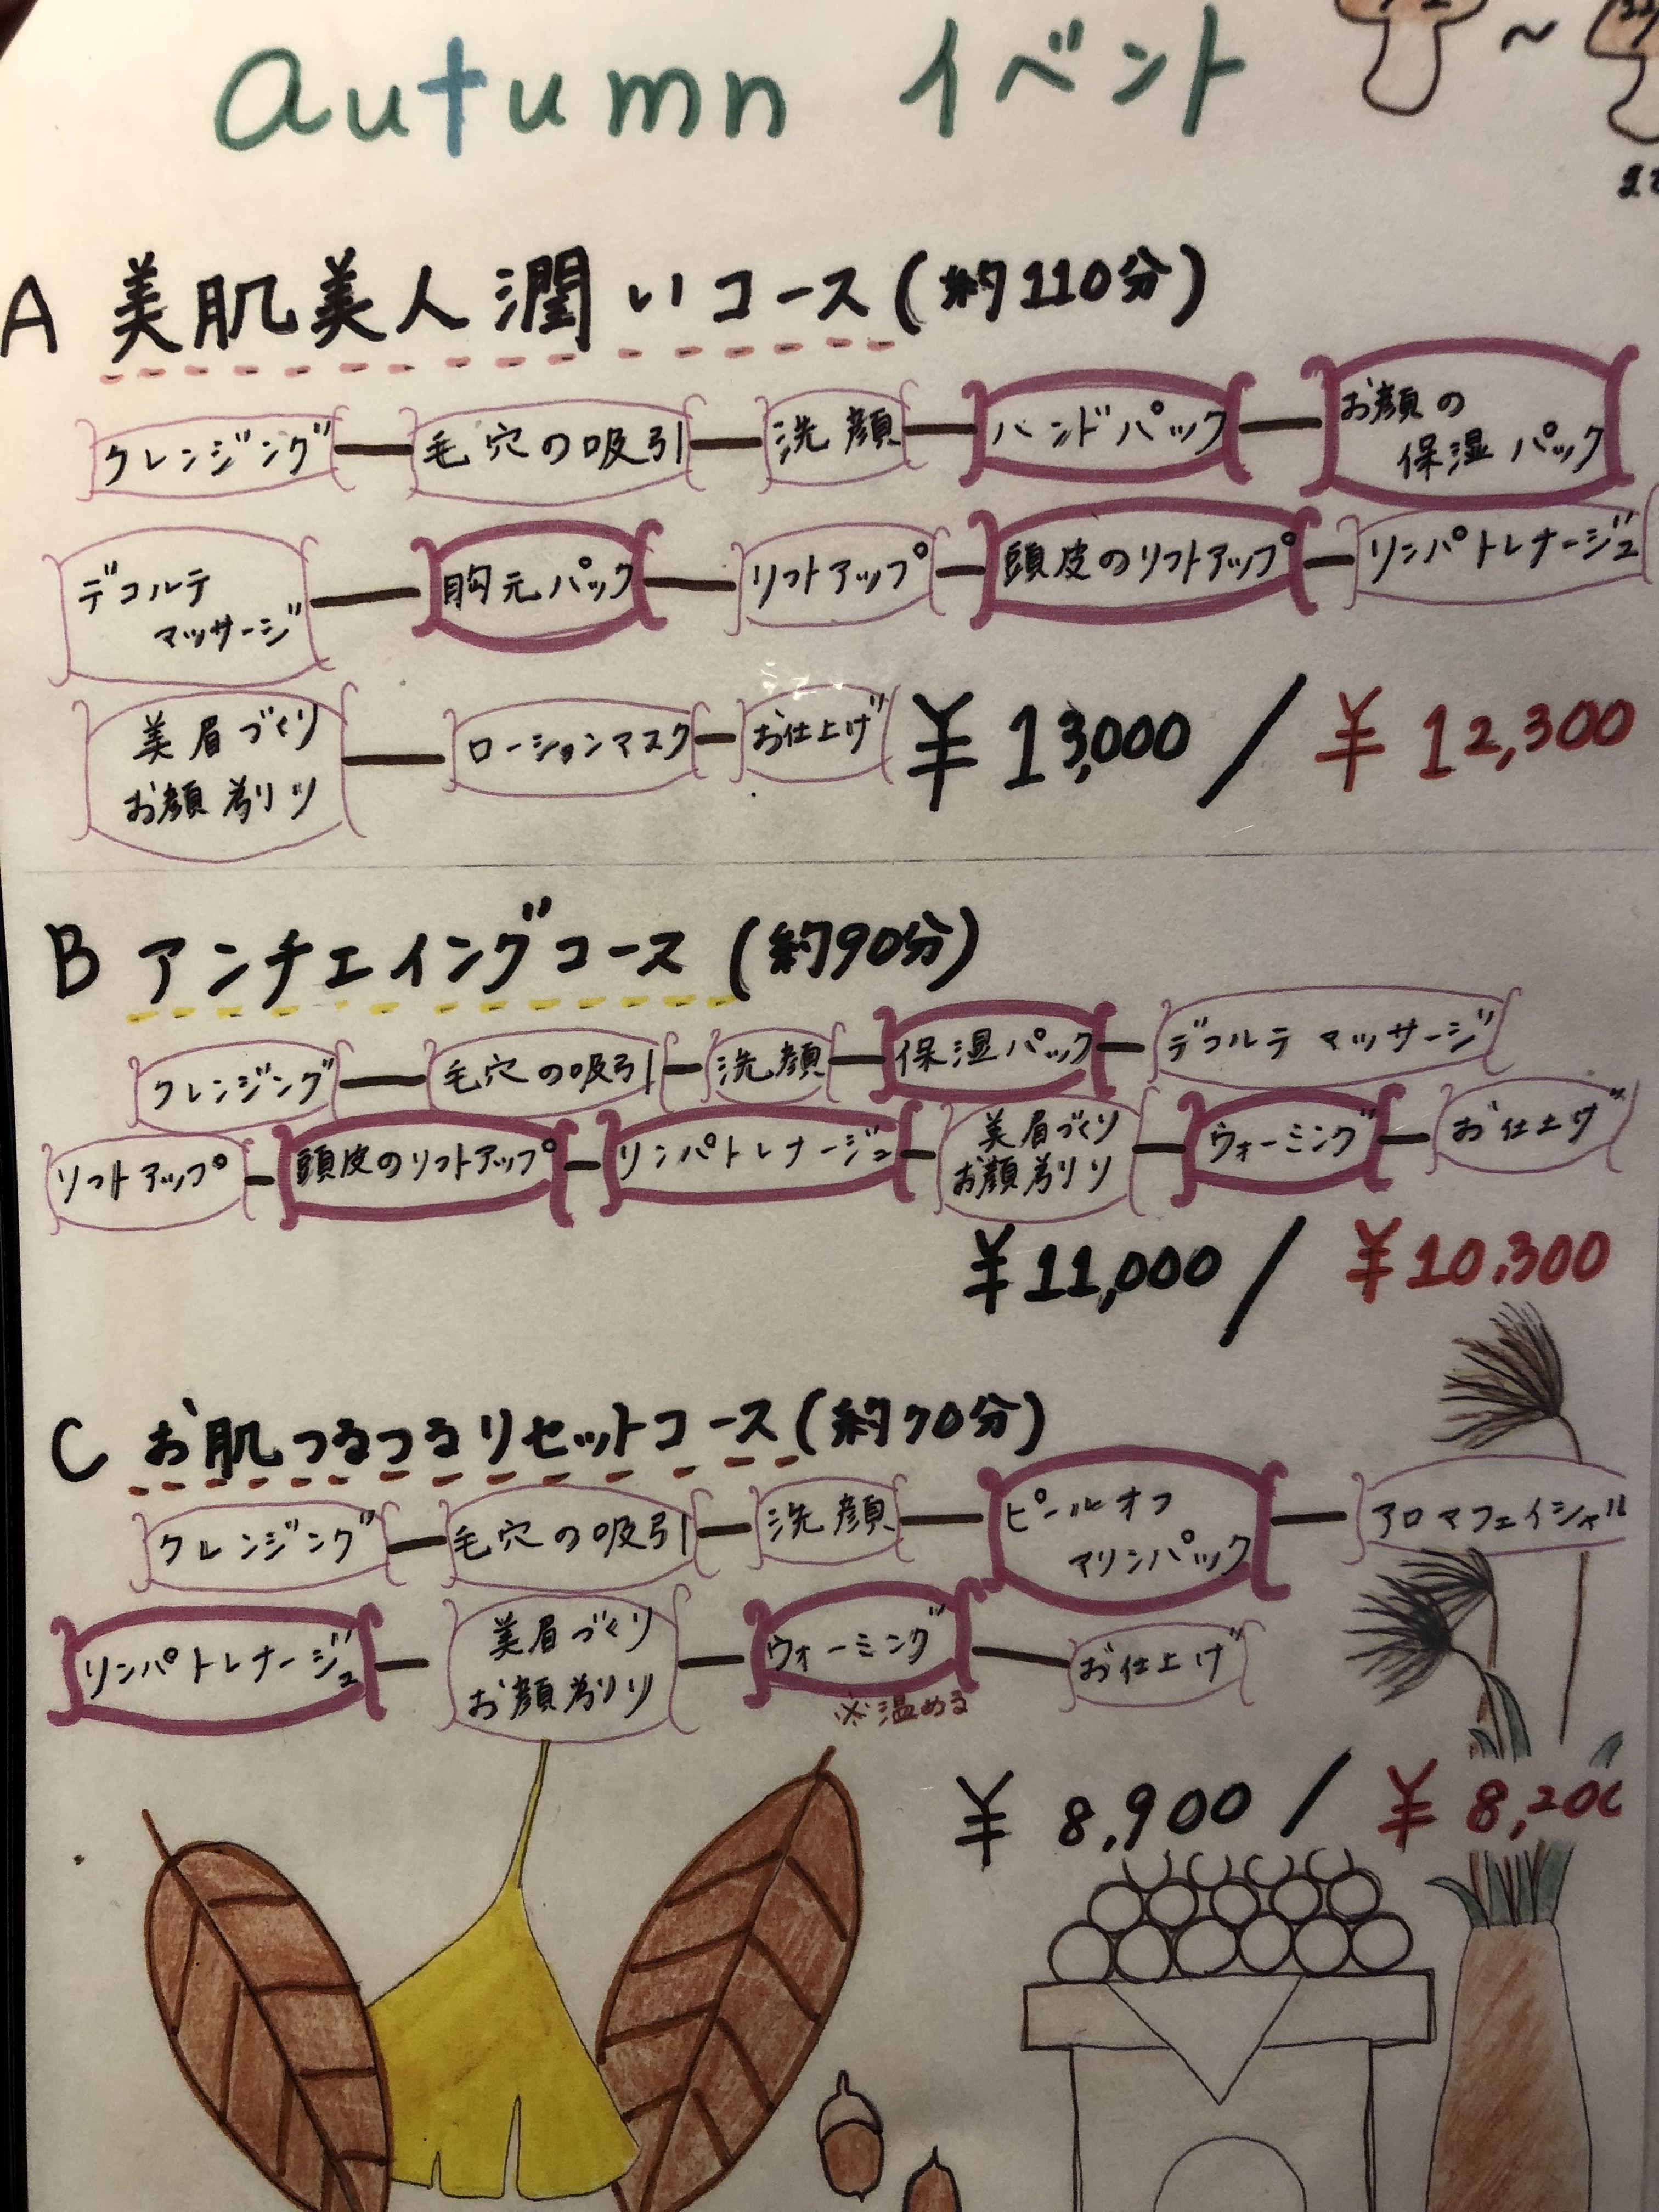 autumn イベント ～
A 美肌美人潤いコース(約110分)
クレンジング 毛穴の吸引 洗顔 ハンドパック お顔の
保湿パック
デコルテ
マッサージ 胸元パック リフトアップ 頭皮のリフトアップ リンパトレナージュ
美眉づくり
お顔剃り ローションマスク お仕上げ ¥13,000 / ¥12,300
B アンチェイングコース (約90分)
クレンジング 毛穴の吸引 洗顔 保湿パック デコルテマッサージ
リフトアップ 頭皮のリフトアップ リンパトレナージュ 美眉づくり
お顔剃り ウォーミング お仕上げ
¥11,000 / ¥10,300
C お肌つるつるリセットコース(約70分)
クレンジング 毛穴の吸引 洗顔 ピールオフ
マリンパック アロマフェイシャル
リンパトレナージュ 美眉づくり
お顔剃り ウォーミング お仕上げ
※温める
¥8,900 / ¥8,200